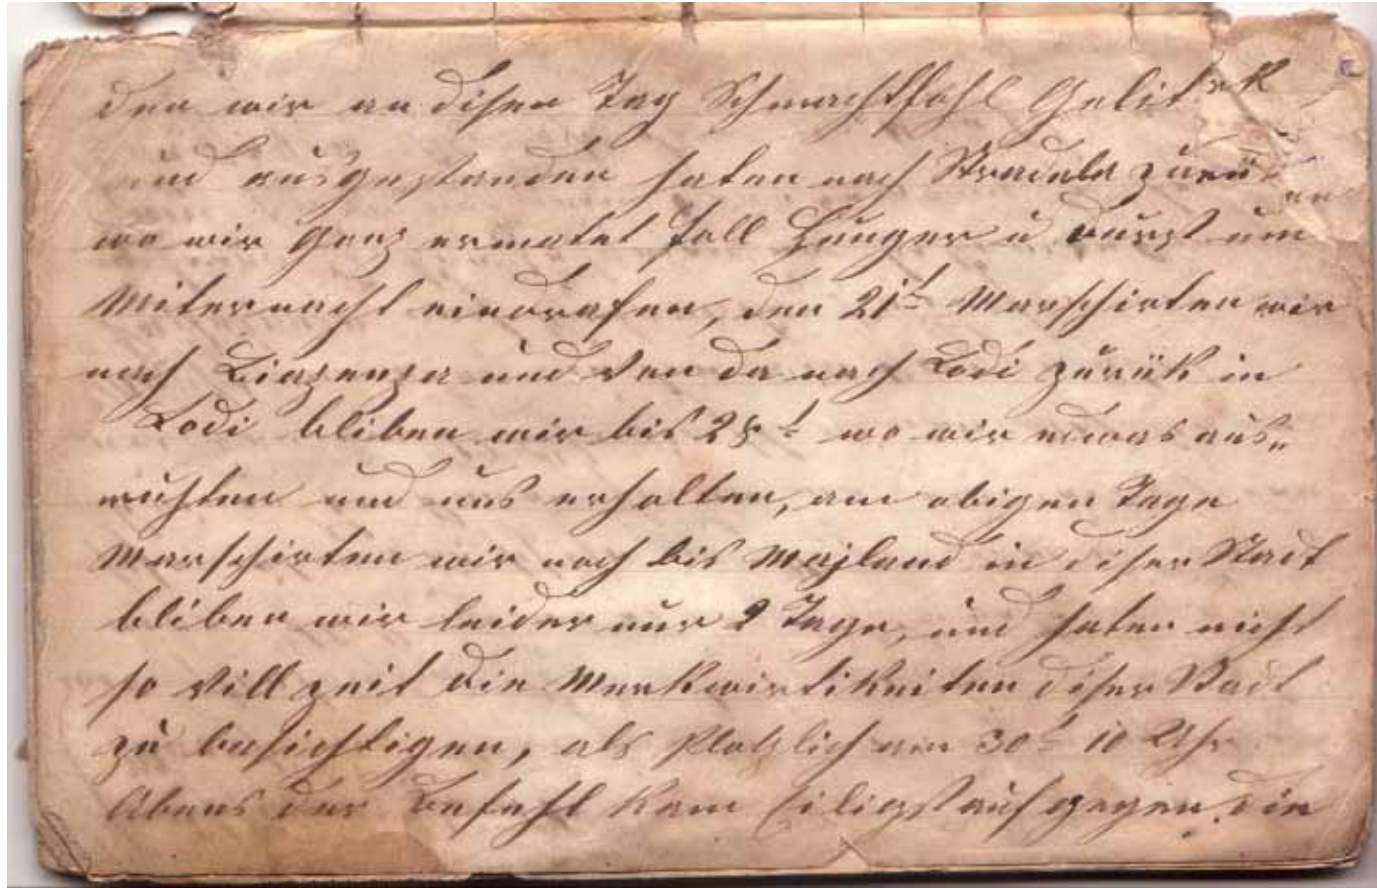 den wir an disen Tag Schmachtfohl Gelit
und ausgestanden haten nach Stradela zurü
wo wir Ganz ermatet foll Hunger u Durst um
Miternacht eindrafen, den 21t Marschirten wir
nach Biazenza und von da nach Lodi zurük in
Lodi bliben wir bis 28t wo wir etwas aus„
ruhten und uns erholten, am obigen Tage
Marschirten wir noch bis Majland in diser Stadt
bliben wir leider nur 2 Tage, und haten nicht
so vill zeit die Merkwirtikeiten diser Stadt
zu besichtigen, als Plotzlich am 30t 10 Uhr
Abens der Befehl kam Eiligst auf gegen die